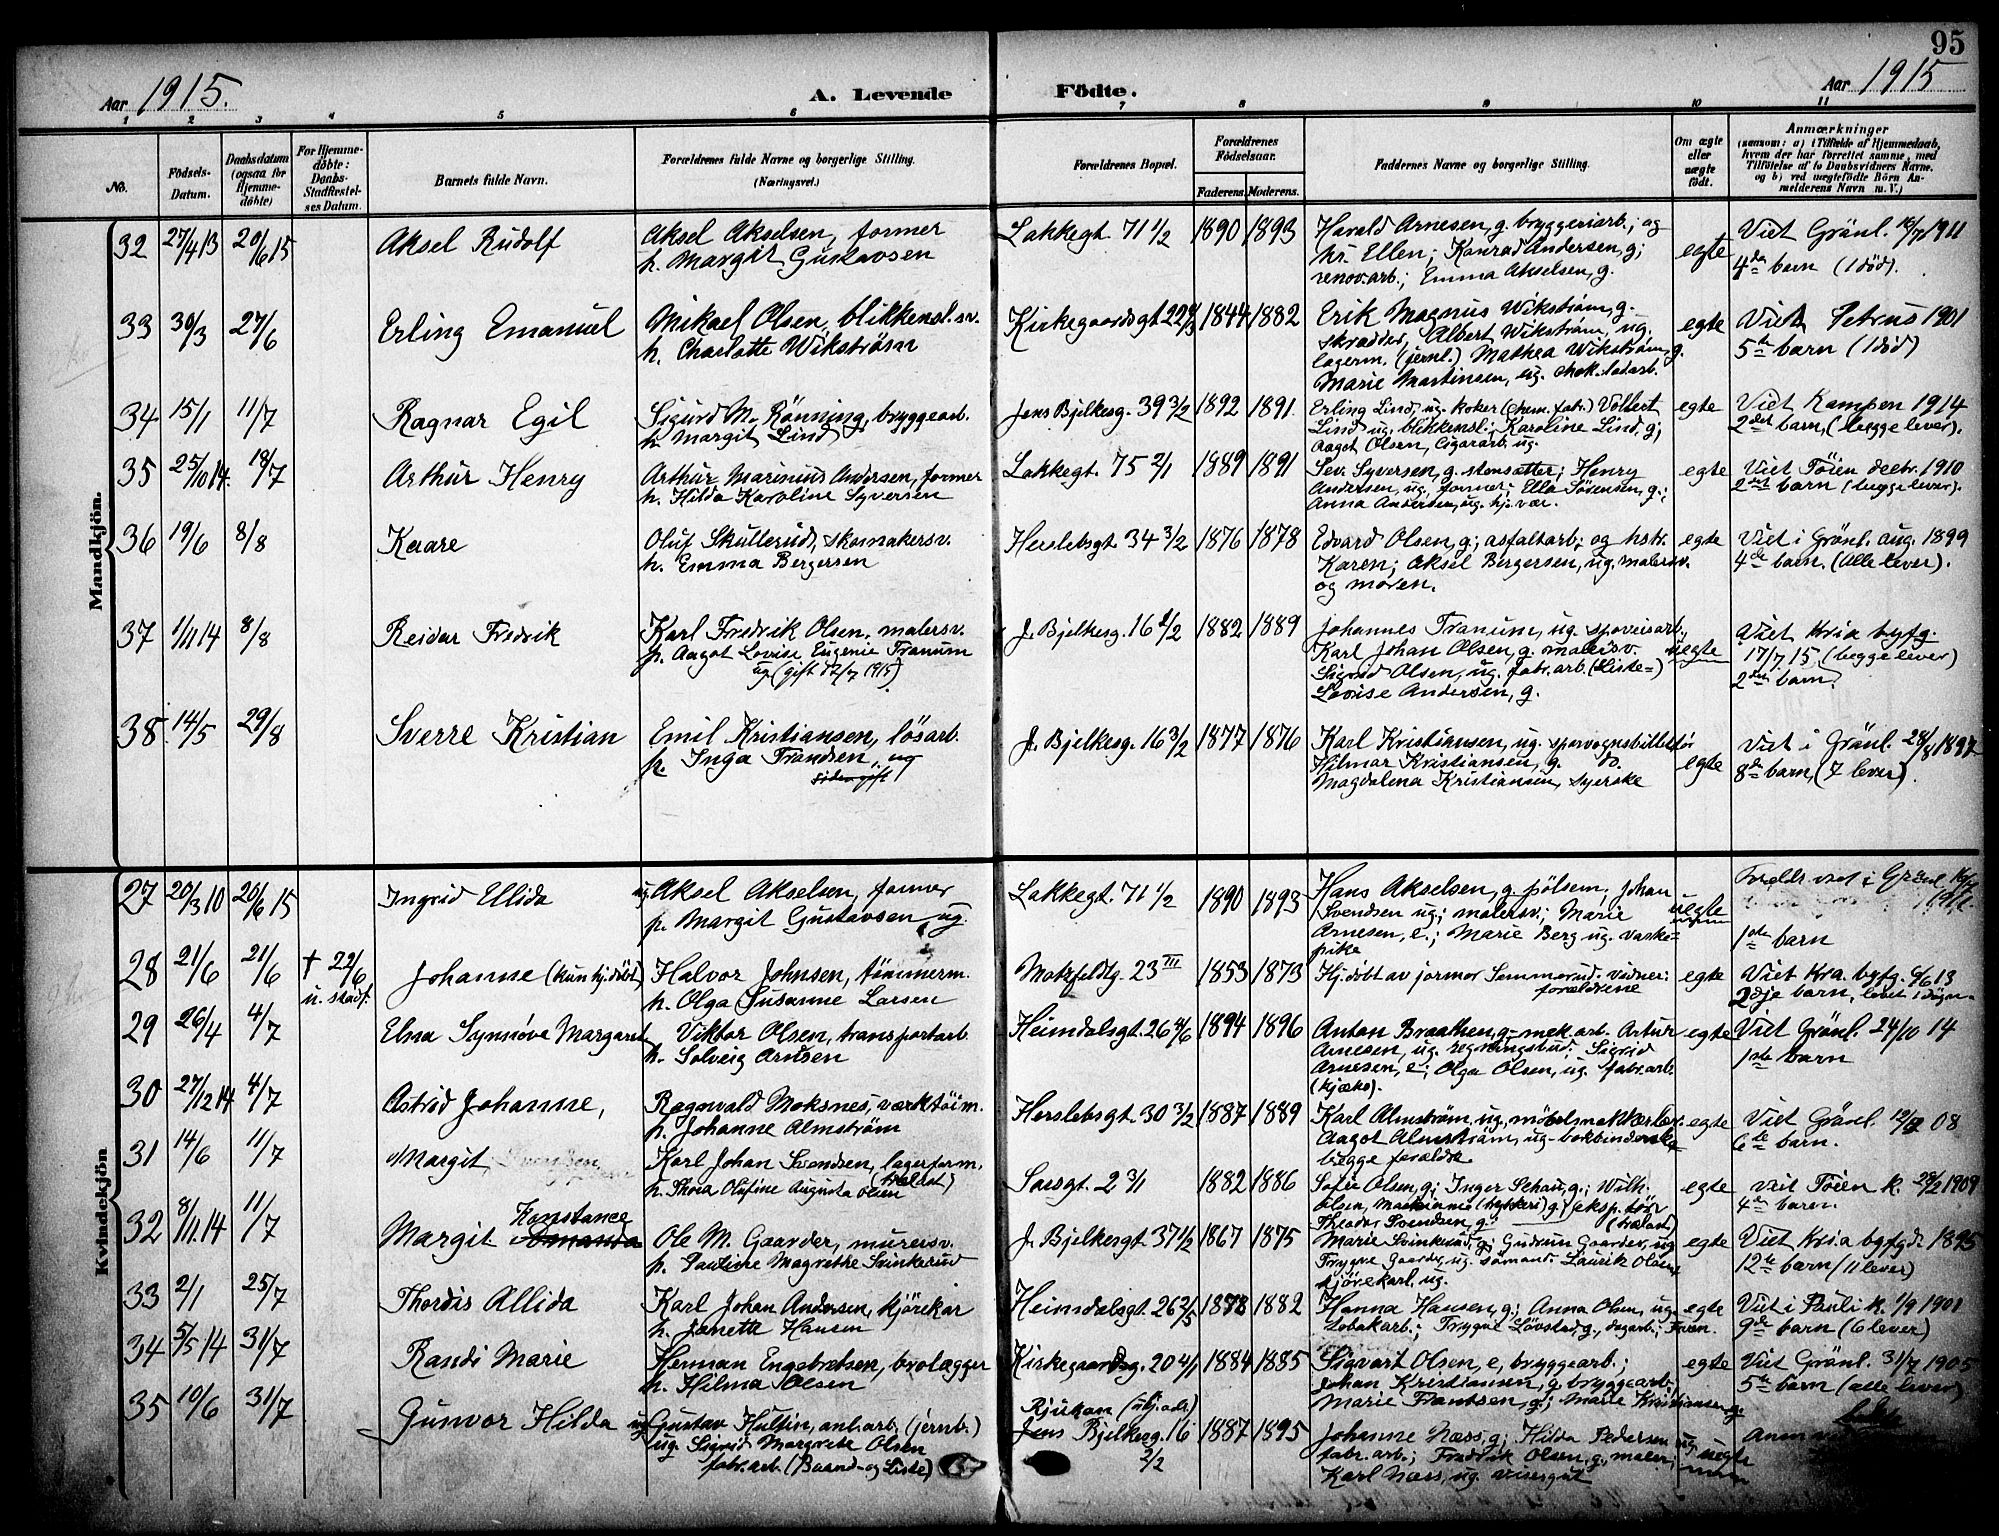 95
Aar 1915.
A. Levende
Födte.
Aar 1915
1 2 3 4 5 6 7 8 9 10 11
No.
Födsels-
Datum.
Daabsdatum
(ogsaa for
Hjemme-
döbte)
For Hjemme-
döbte:
Daabs-
Stadfæstel-
ses Datum.
Barnets fulde Navn.
Forældrenes fulde Navne og borgerlige Stilling.
(Næringsvei.)
Forældrenes Bopæl.
Forældrenes
Födselsaar.
Faderens. Moderens.
Faddernes Navne og borgerlige Stilling.
Om ægte
eller
uægte
födt.
Anmærkninger
(saasom: a) i Tilfælde af Hjemmedaab,
hvem der har forrettet samme, med
Tilföielse af to Daabsvidners Navne.
og b) ved uægtefödte Börn An-
melderens Navn m. V.)
Mandkjön.
32 27/4 13 20/6 15 Aksel Rudolf
Aksel Akselsen, former
h. Margit Gustavsen
Lakkegt. 71 1/2 1890 1893
Harald Arnesen, g. bryggeriarb.; og
hr. Ellen; Konrad Andersen, g;
renov.arb; Emma Akselsen, g.
egte
Viet Grönl. 16/7 1911
4de barn (1 død).
33 30/3 27/6 Erling Emanuel
Mikael Olsen, blikkensl.sv.
h. Charlotte Wikstrøm
Kirkegaardsgt 22 1844 1882
Erik Magnus Wikstrøm, g.
skrædder, Albert Wikstrøm, ug.
lagerm. (jernl.) Mathea Wikstrøm, g.
Marie Martinsen, ug. chok.ladarb.
egte
Viet Petrus 1901
5te barn (1 död)
34 15/1 11/7 Ragnar Egil
Sigurd M. Rönning, bryggearb.
h. Margit Lind
Jens Bjelkesg. 39 3/2 1892 1891.
Erling Lind, ug. koker (chem.fabr.) Volbert
Lind ug. blikkensl; Karoline Lind, g;
Aagot Olsen, Cigararb. ug.
egte
Viet Kampen 1914
2det barn, (begge lever).
35 25/10 14. 18/7 Arthur Henry
Arthur Marinius Andersen, former
h. Hilda Karoline Syversen
Lakkegt. 75 2/1 1889 1891
Sev. Syversen, g. stensætter; Henry
Andersen, ug, former; Ella Sørensen, g.;
Anna Andersen, ug. hj. vær.
egte
Viet Töien decbr. 1910
2det barn (begge lever).
36 19/6 8/8 Kaare
Oluf Skullerud, skomakersv.
h. Emma Bergersen
Herslebsgt 34 3/2 1876 1878
Edvard Olsen, g; asfaltarb; og hstr.
Karen; Aksel Bergersen, ug. malersv.
og moren.
egte
Viet i Grönl. aug. 1899
4de barn. (Alle lever).
37 1/11 14 8/8 Reidar Fredrik
Karl Fredrik Olsen, malersv.
p. Aagot Lovise Eugenie Tranum
ug (gift 17/7 1915)
J. Bjelkesg. 16 1/2 1882 1889
Johannes Tranum, ug. sporveisarb.,
Karl Johan Olsen, g. malersv.
Sigrid Olsen, ug. fabr.arb. (Liste-)
Lovise Andersen, g.
uegte
Viet Kria byfg.
17/7 15 (begge lever)
2det barn.
38 14/5 29/8 Sverre Kristian
Emil Kristiansen, løsarb.
p. Inga Frandsen, ug
siden gift
J. Bjelkesg. 16 3/2 1877 1876
Karl Kristiansen, ug. sporvognsbilletör
Hilmar Kristiansen, g. do.
Magdalena Kristiansen, syerske
egte
Viet i Grönl. 28/8 1897
8de barn, (7 lever).
Kvindekjön
27 20/3 10 20/6 15 Ingrid Ellida
ug. Aksel Akselsen, former
p. Margit Gustavsen ug.
Lakkegt. 71 1/2 1890 1893
Hans Akselsen, g. pølsem; Johan
Svendsen ug; malersv.; Marie
Arnesen, e.; Marie Berg ug. vaske-
pike
uegte
Foreldr. viet i Grönl. 16/7
1911
1ste barn
28 21/6 21/6 † 22/6
u. stadf.
Johanne (kun hj. döbt)
Halvor Johnsen, tömmerm.
h. Olga Susanne Larsen
Motzfeldtg. 23 III 1853 1873
Hj. döbt av jormor Sommerud. vidner:
forældrene
egte
Viet Kra. byfg. 9/6 13
2dje barn, levet 1 døgn.
29 26/4 4/7 Elna Synnöve Margaret
Viktor Olsen, transportarb.
h. Solveig Arnesen
Heimdalsgt. 26 4/6 1894 1896
Anton Braathen, g. mek. arb. Artur
Arnesen, ug. regningsbud. Sigrid
Arnesen, e; Olga Olsen, ug. fabr.arb.
(kjæks).
egte
Viet Grönl. 24/10 14
1ste barn
30 27/12 14 4/7 Astrid Johanne,
Ragnvald Moksnes, værktöim.
h. Johanne Almström
Herslebsgt 30 3/2 1887 1889
Karl Almström, ug, möbelsnekkerlær.
Aagot Almström, ug. bokbinderske
begge forældre.
egte
Viet Grönl. 08
6te barn.
31 14/6 11/7 Margit
Karl Johan Svendsen, lagerform.
(trælast)
h. Thora Olufine Augusta Olsen
Sarsgt. 2 3/1 1882 1886
Sofie Olsen, g; Inger Schau, g.; Wilh.
Olsen, Maskinmei (trykkeri) g; ekspeditör
Theodor Svendsen, g. (trælast)
egte
Viet Töien k. 28/2 1909
4de barn.
32 8/11 14 11/7 Margit Konstance
~~Amanda~~
Ole M. Gaarder, murersv.
h. Pauline Magrethe Svinkerud
J. Bjelkesgt 37 1/2 1867 1875
Marie Svinkerud, g; Gudrun Gaarder, ug
Trygve Gaarder, ug. sömand. Laurik Olsen,
kjörekarl, ug.
egte
Viet Kria byfgd. 1895
12te barn (11 lever)
33 2/1 25/7 Thordis Allida
Karl Johan Andersen, kjörekar
h. Janetta Hansen
Heimdalsgt. 26 2/5 1878 1882
Hanna Hansen, g; Anna Olsen, ug.
tobakarb.; Trygve Lövstad, g., dagarb.; Faren.
egte
Viet i Pauli k. 1/9 1901
9de barn (6 lever)
34 5/5 14 31/7 Randi Marie
Herman Engebretsen, brolægger
h. Hilma Olsen
Kirkegaardsg. 20 4/1 1884 1885
Sigvart Olsen, e, bryggearb.;
Johan Kristiansen, g. bryggearb,
Marie Frantsen, g.; Marie Kristiansen g.
egte
Viet Grönl. 31/7 1905
5te barn (alle lever)
35 10/6 31/7 Gunvor Hilda
ug Gustav Hultin, anl.arb. (jernb.)
ug. Sigrid Margrete Olsen
fabr.arb. (Baand- og Liste)
Rjukan
Jens Bjelkesg. 16
2/2
1887 1895
Johanne Næss, g; Hilda Pedersen ug.
fabr.arb.; Fredrik Olsen, g., maler,
Karl Næss, ug. visergut
uegte